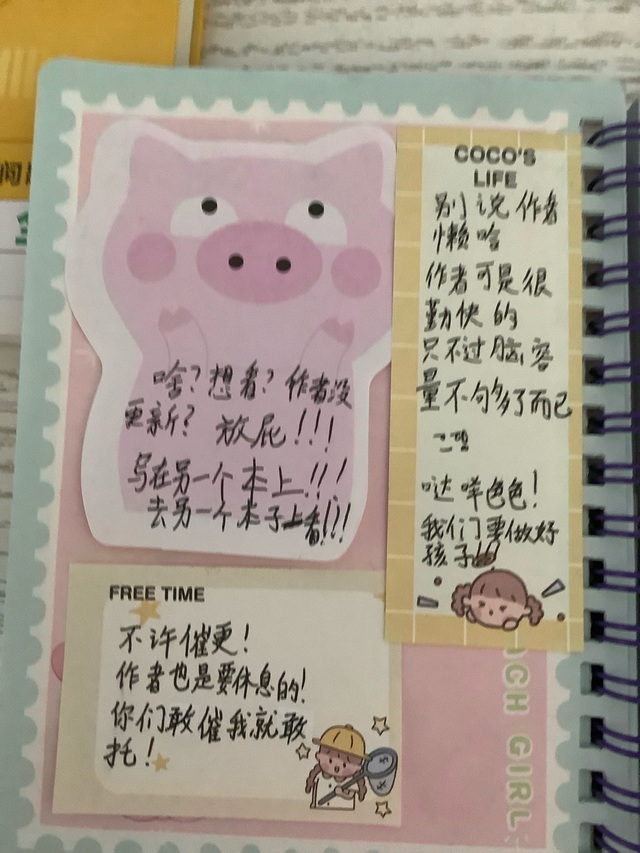 啥？想看？作者没
更新？ 放屁！！！
写在另一个本上！！！
去另一个本子上看！！！
COCO'S
LIFE
别说作者
懒哈
作者可是很
勤快的
只不过脑容
量不够了而已
哒咩色色！
我们要做好
孩子！！！
FREE TIME
不许催更！
作者也是要休息的！
你们敢催我就敢
托！
OCH GIRL